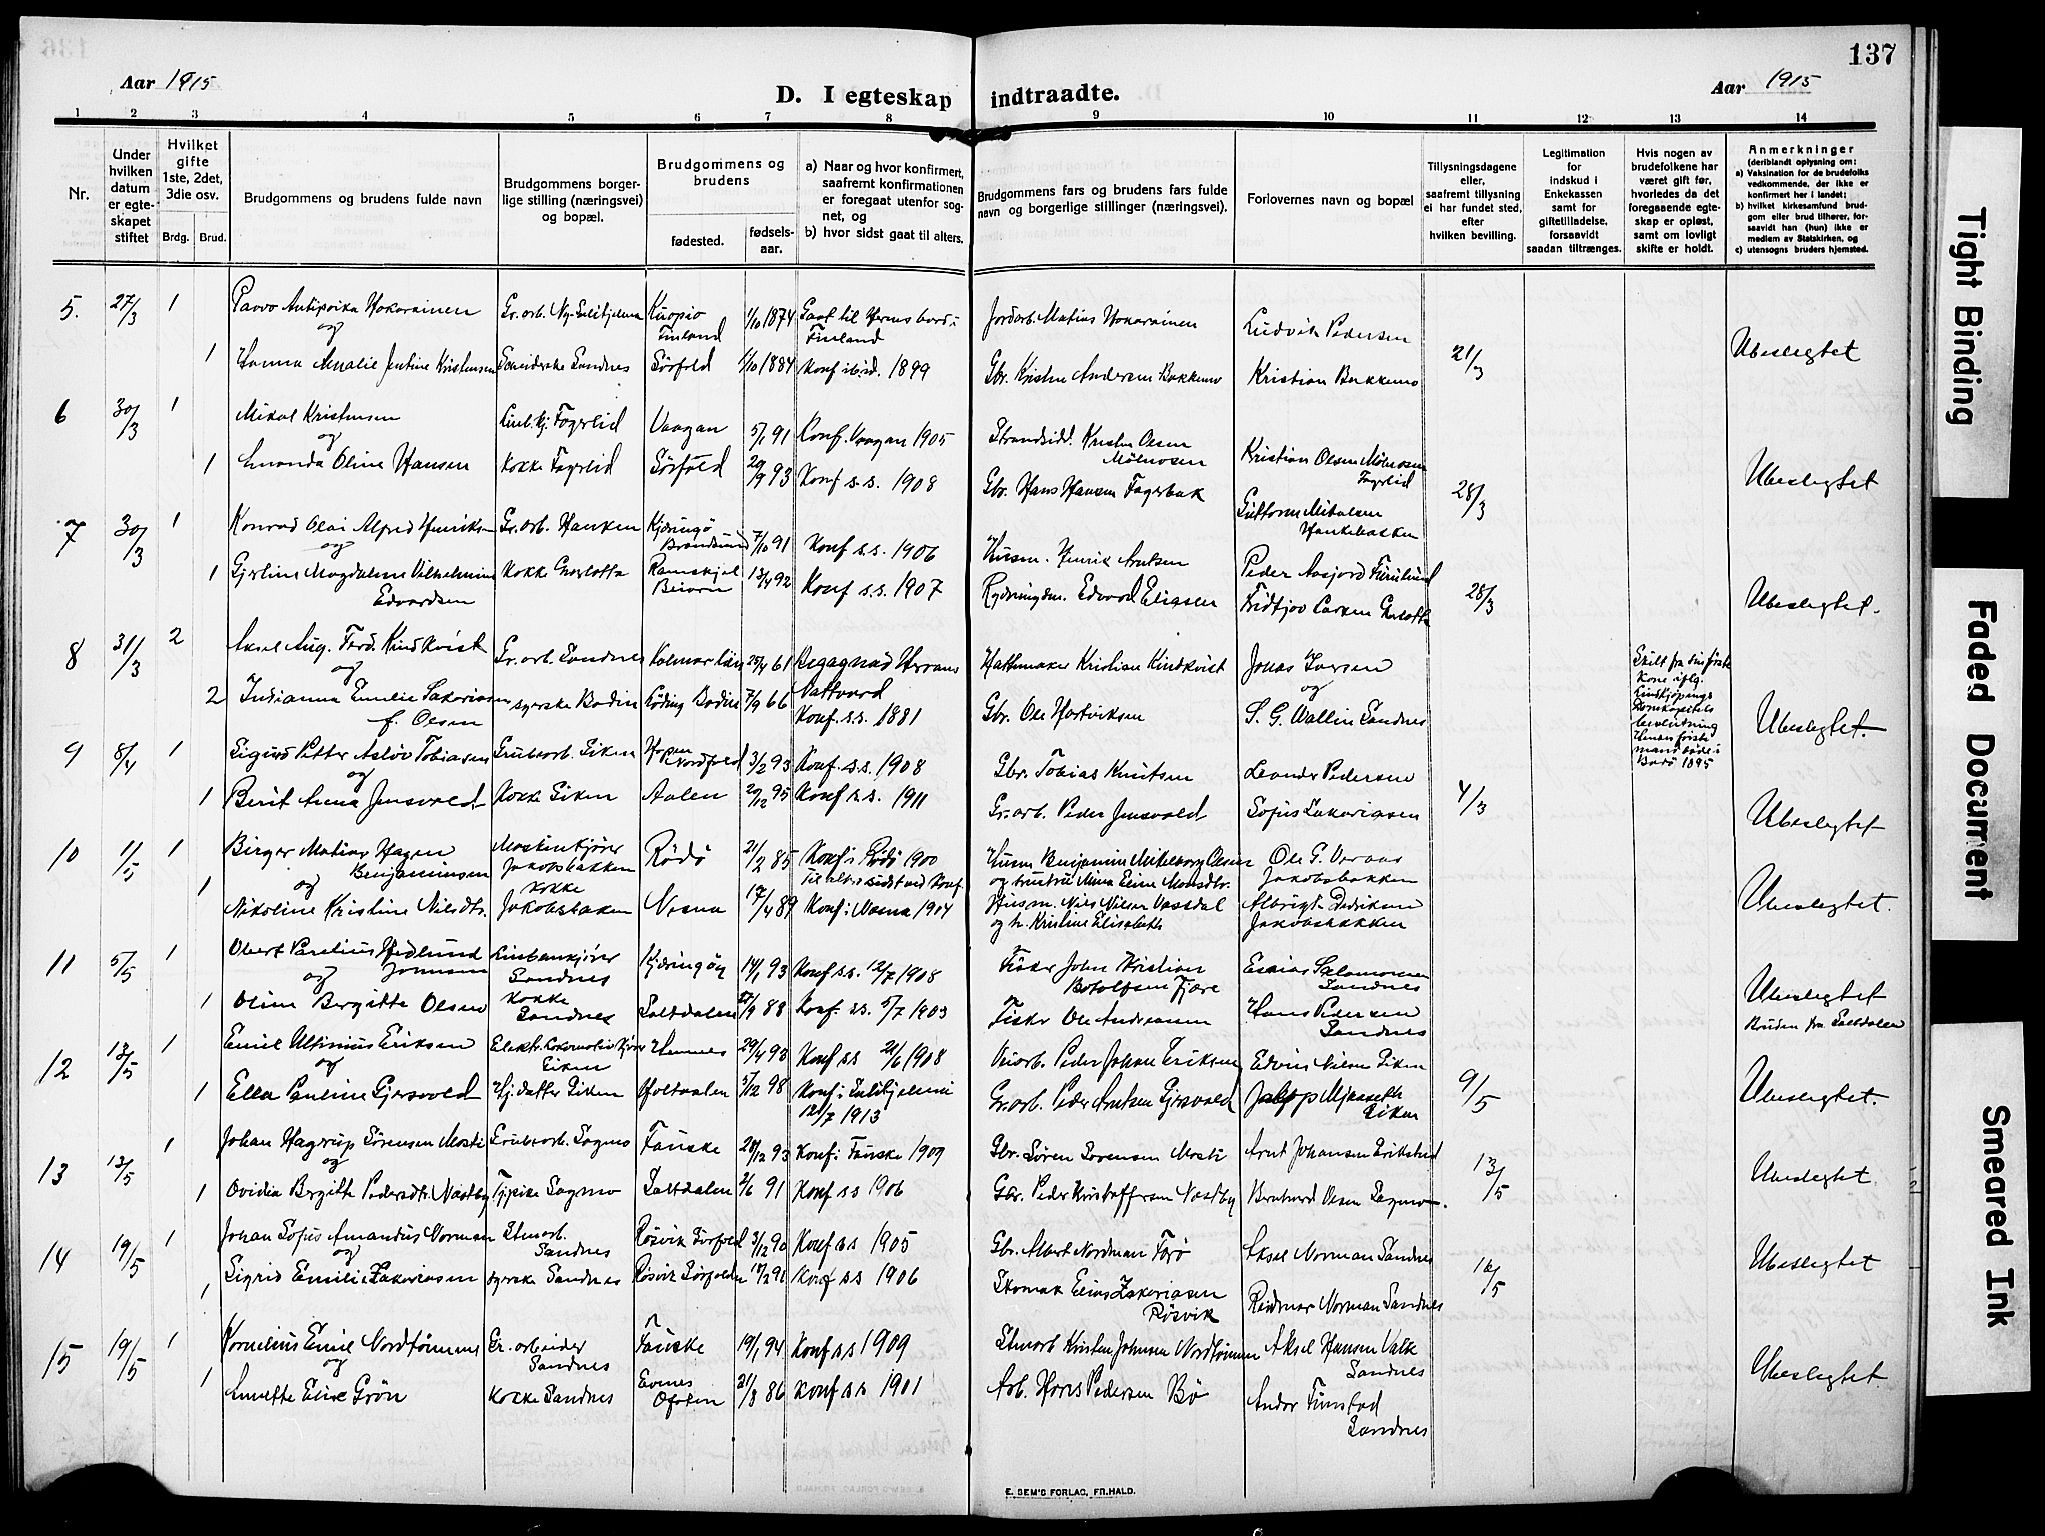 137
Aar 1915
D. I egteskap indtraadte.
Aar 1915
1 2 3 4 5 6 7 8 9 10 11 12 13 14
Nr.
Under hvilken datum er egte-skapet stiftet
Hvilket gifte 1ste, 2det, 3die osv.
Brdg. Brud.
Brudgommens og brudens fulde navn
Brudgommens borger-lige stilling (næringsvei) og bopæl.
Brudgommens og brudens
fødested.
fødsels-aar.
a) Naar og hvor konfirmert, saafremt konfirmationen er foregaat utenfor sog-net, og
b) hvor sidst gaat til alters.
Brudgommens fars og brudens fars fulde navn og borgerlige stillinger (næringsvei).
Forlovernes navn og bopæl
Tillysningsdagene eller, saafremt tillysning ei har fundet sted, efter hvilken bevilling.
Legitimation for indskud i Enkekassen samt for giftetilladelse, forsaavidt saadan tiltrænges.
Hvis nogen av brudefolkene har været gift før, hvorledes da det foregaaende egte-skap er opløst, samt om lovligt skifte er holdt.
Anmerkninger (deriblandt oplysning om:
a) Vaksination for de brudefolks vedkommende, der ikke er konfirmert her i landet;
b) hvilket kirkesamfund brud-gom eller brud tilhører, for-saavidt han (hun) ikke er medlem av Statskirken, og
c) utensogns bruders hjemsted.
5. 27/3 1 Paavo Antipoika Hokarainen Gr. arb. Ny-Sulitjelma Kuopio Finland 1/10 1874 Gaat til Herrens bord i Finland Jordarb. Matias Hokarainen Ludvik Pedersen
og
1 Hanna Amalie Jentine Kristensen Sandnes Sørfold 1/10 1884 Konf ibid. 1899 Gbr. Kristen Andersen Bakkemo Kristian Bakkemo 21/3 Ubeslegtet
6 30/3 1 Mikal Kristensen Linb.kj. Fagerlid Vaagan 5/1 91 Konf. Vaagan 1905 Strandsidd. Kristen Olsen Mølnosen Kristian Olsen Mølnosen Fagerlid
og
1 Amanda Oline Hansen Kokke Fagerlid Sørfold 29/9 93 Konf s.s. 1908 Gbr. Hans Hansen Fagerbak Guttorm Mikalsen Hankabakken 28/3 Ubeslegtet
7 30/3 1 Konrad Olai Alfred Henriksen Gr. arb. Hanken Kjæringø 7/10 91 Konf s.s. 1906 Husm. Henrik Arntsen Peder Aasjord Furulund
og
1 Gjerline Magdalene Vilhelmine Edvardsen Kokke Charlotta Beiarn 13/4 92 Konf s.s. 1907 Rydningsm. Edvard Eliasen Fridtjov Larsen Charlotta 28/3 Ubeslegtet.
8 31/3 2 Aksel Aug. Ferd. Lindkvist Gr. arb. Sandnes Kalmar län 25/4 61 Begagnad Herrans Nattvard Hattemaker Kristian Lindkvist Jonas Iversen
og
2 Indianna Emelie Sakariassen f. Olsen syerske Bodin Løding Bodin 7/9 66 Konf. s.s. 1881 Gbr. Ole Hartviksen S. G. Wallin Sandnes
Skilt fra sin første kone iflg. Linkjøpings Domkapitels beslutning Hendes første mand døde i Bodø 1895
Ubeslegtet.
9 8/4 1 Sigurd Petter Asløv Tobiasen Grubearb. Giken Hopen Nordfold 3/2 93 Konf. s.s. 1908 Gbr. Tobias Knutsen Leander Pedersen
og
1 Berit Anna Jensvold Kokke Giken Aalen 29/12 95 Konf s.s. 1911 Gr. arb. Peder Jensvold Sofus Sakariasen 4/3 Ubeslegtet
10 1/5 1 Birger Matias Hagen Benjaminsen Maskinkjører Jakobsbakken Rødø 21/2 85 Konf i Rødø 1900 Til alters sidst ved Konf. Husm. Benjamin Mikelborg Olsen og hustru Mina Eline Monsdtr. Ole G. Veraas Jakobsbakken
og
1 Nikoline Kristine Nilsdtr. Kokke Jakobsbaken Nesna 17/4 89 Konf i Nesna 1904 Husm. Nils Nilsen Vassdal og h. Kristine Elisabeth Albrigt Jakobsbakken Ubeslegtet.
11 5/5 1 Obert Parelius Hedlund Johnsen Linbankjører Sandnes Kjæringøy 14/1 93 Konf s.s. 12/7 1908 Fisker John Kristian Botolfsen Fjære Esaias Salomonsen Sandnes
og
1 Oline Bergitte Olsen Kokke Sandnes Saltdalen 27/9 88 Konf. s.s. 5/7 1903 Fisker Ole Andreassen Hans Pedersen Sandnes Ubeslegtet Bruden fra Saltdalen
12 13/5 1 Emil Ultimus Eriksen Elektr. Lokomotivkjører Giken Hemnes 29/4 93 Konf s.s 21/6 1908 Veiarb. Peder Johan Eriksen Edvin Nilsen Giken
og
1 Ella Pauline Gjersvold Hj.datter Giken Holtaalen 5/12 98 Konf i Sulitjelma 12/7 1913 Gr. arb. Peder Arntsen Gjersvold Giken 9/5 Ubeslegtet.
13 13/5 1 Johan Hagerup Sørensen Mosti Grubearb. Sagmo Fauske 28/12 93 Konf i Fauske 1909 Gbr. Søren Sørensen Mosti Arnt Johansen Erikstad
og
1 Ovidia Bergitte Pedersdtr. Næstby Tjpike Sagmo Saltdalen 2/6 91 Konf s s 1906 Gbr. Peder Kristoffersen Næstby Berntward Olsen Sagmo. 13/5 Ubeslegtet
14 19/5 1 Johan Sofus Amandus Norman Stmarb. Sandnes Røsvik Sørfold 3/12 90 Konf s s 1905 Gbr. Albert Nordman Færø Aksel Norman Sandnes
og
1 Sigrid Emilie Zakariasen syerske Sandnes Røsvik Sørfolden Konf s s 1906 Skomak. Elias Zakariasen Røsvik Reidmar Norman Sandnes 16/5 Ubeslegtet
15 19/5 1 Kornelius Emil Nordtømme Gr. arbeider Sandnes Fauske 19/1 94 Konf s s 1909 Stmarb Kristen Johnsen Nordtømme Aksel Hansen Valk Sandnes
og
1 Annette Elise Grøn Kokke Sandnes Evenes Ofoten 21/3 86 Konf s.s. 1901 Arb. Hans Pedersen Bø Andor Finstad Sandnes Ubeslegtet.
E. SEM'S FORLAG, FR.HALD.
Tight Binding
Faded Document
Smeared Ink